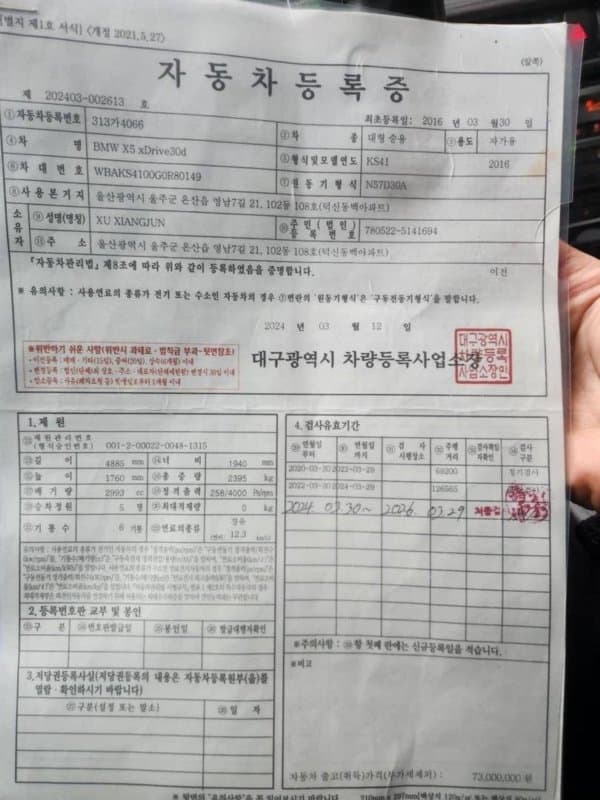 [별지 제1호 서식] <개정 2021.5.27>
(앞쪽)
자동차등록증
제 202403-002613 호
최초등록일: 2016 년 03 월 30 일
①자동차등록번호 313가4066 ②차 종 대형 승용 ③용도 자가용
④차 명 BMW X5 xDrive30d ⑤형식및모델연도 KS41 2016
⑥차 대 번 호 WBAKS4100G0R80149 ⑦원 동 기 형 식 N57D30A
⑧사 용 본 거 지 울산광역시 울주군 온산읍 영남7길 21, 102동 108호(덕신동백아파트)
소유자 ⑨성명(명칭) XU XIANGJUN ⑩주민(법인)등록번호 780522-5141694
⑪주 소 울산광역시 울주군 온산읍 영남7길 21, 102동 108호(덕신동백아파트)
『자동차관리법』제8조에 따라 위와 같이 등록하였음을 증명합니다. 이전
※ 유의사항 : 사용연료의 종류가 전기 또는 수소인 자동차의 경우 ⑦란의 '원동기형식'은 '구동전동기형식'을 말합니다.
2024 년 03 월 12 일
※위반하기 쉬운 사항(위반시 과태료·범칙금 부과-뒷면참조)
대구광역시 차량등록사업소장
대구광역시
차량등록
사업소장인
1. 제 원
제원관리번호
(형식승인번호) 001-2-00022-0048-1315
길 이 4885 mm 너 비 1940 mm
높 이 1760 mm 총 중 량 2395 kg
배 기 량 2993 cc 정격출력 258/4000 Ps/rpm
승차정원 5 명 최대적재량 0 kg
기 통 수 6 기통 연료의종류 경유
12.3
2. 등록번호판 교부 및 봉인
구 분 번호판발급일 봉인일 발급대행자확인
3. 저당권등록사실(저당권등록의 내용은 자동차등록원부(을)를
열람·확인하시기 바랍니다)
구분(설정 또는 말소) 일 자
4. 검사유효기간
연월일부터 연월일까지 검사시행장소 주행거리 검사책임자확인 검사구분
2020-03-30 2022-03-29 69200 정기검사
2022-03-30 2024-03-29 126565
2024 03.30~ 2026 03.29
※주의사항 : 항 첫째 란에는 신규등록일을 적습니다.
※비고
자동차 출고(취득)가격(부가세제외) : 73,000,000 원